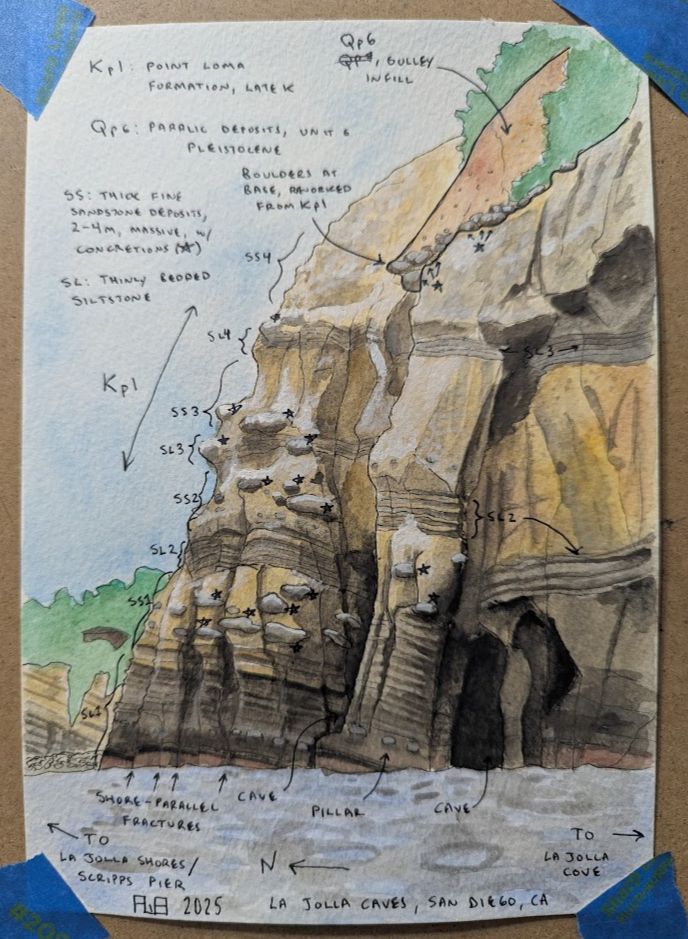 Kpl: POINT LOMA
FORMATION, LATE K
Qp6
GULLEY
INFILL
Qp6: PARALIC DEPOSITS, UNIT 6
PLEISTOCENE
BOULDERS AT
BASE,
FROM Kpl
SS: THICK FINE
SANDSTONE DEPOSITS,
2-4m, MASSIVE, w/
CONCRETIONS (☆)
SL: THINLY BEDDED
SILTSTONE
SS4
SL4
SL3
Kpl
SS3
SL3
SS2
SL2
SL2
SS1
SL1
SHORE-PARALLEL
FRACTURES
CAVE
PILLAR
CAVE
TO
LA JOLLA SHORES/
SCRIPPS PIER
N
TO
LA JOLLA
COVE
2025
LA JOLLA CAVES, SAN DIEGO, CA